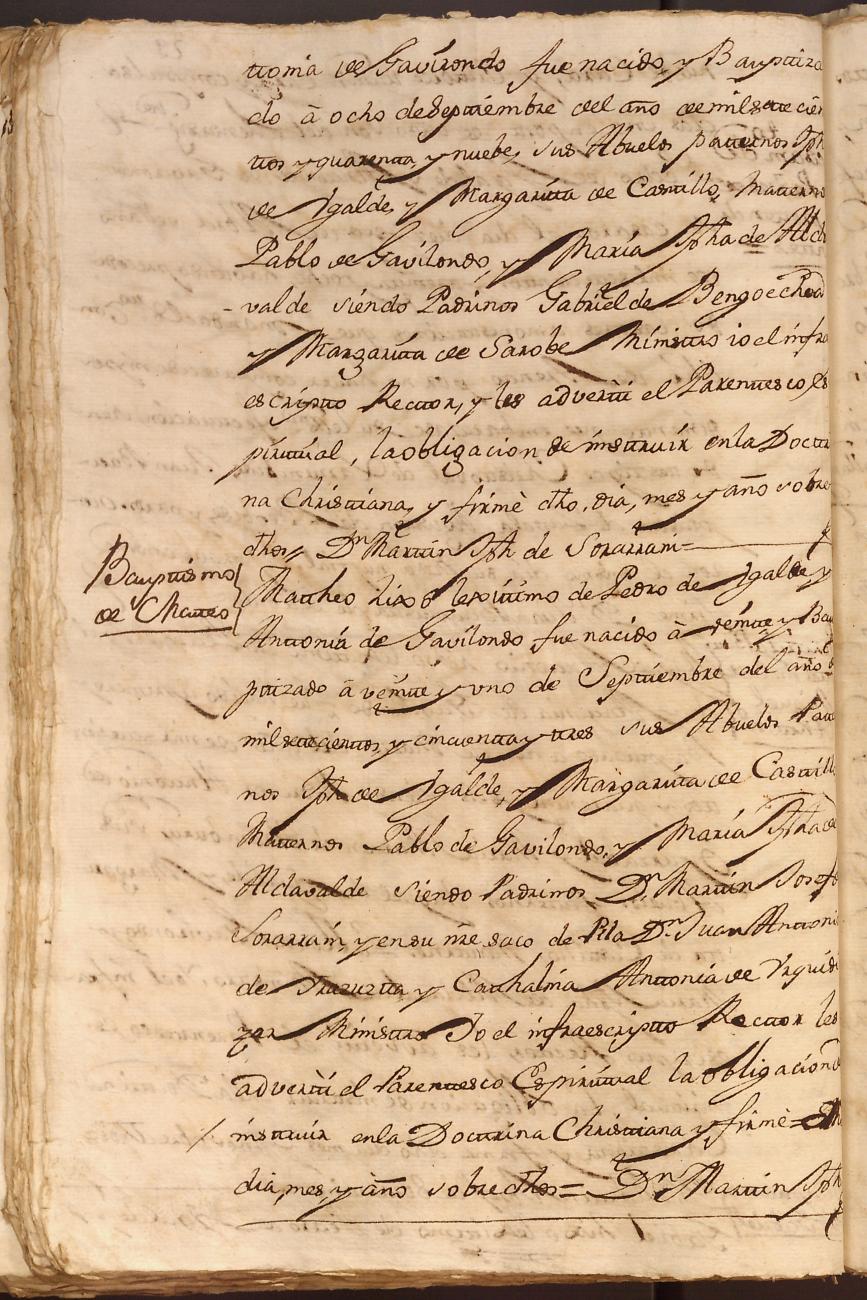 ttonia de Gavirondo fue nacido, y Bauptiza
do â ocho de Septtiembre del año de mil sette cien
ttos y quarentta, y nuebe, sus Abuelos patternos Jph
de Ygalde, y Margaritta de Casttillo, Matterno
Pablo de Gavilondo, y Maria Jpha de Alda
valde siendo Padrinos Gabriel de Bengoechea
y Margaritta de Sarobe Ministtro io el infra
escriptto Recttor, y les adverttí el Parenttesco Es
piritual, la obligacion de insttruir en la Doctri
na Christtiana, y firmè dho, dia, mes y año sobre
dhos // Dn. Marttin Jph de Sorarrain=
Bauptismo
de Matteo
Mattheo hixo lexittimo de Pedro de Ygalde y
Anttonia de Gavilondo fue nacido â veintte y Bau
ptizado â veintte y uno de Septtiembre del año d
mil settecienttos, y cincuentta y ttres sus Abuelos Patter
nos Jph de Ygalde, y Margaritta de Casttillo
Matternos Pablo de Gavilondo, y Maria Jpha de
Aldavalde siendo Padrinos Dn. Marttin Josef
Sorarrain, y en su nre saco de Pila Dn. Juan Anttoni
de y Cathalina Anttonia de Urquidi
zar Ministtro Yo el infraescriptto Recttor les
adverttí el Parenttesco Espirittual la obligacion d
insttruir en la Docttrina Christtiana y firmè=
dia, mes, y año sobre dhos= Dn. Marttin Jph